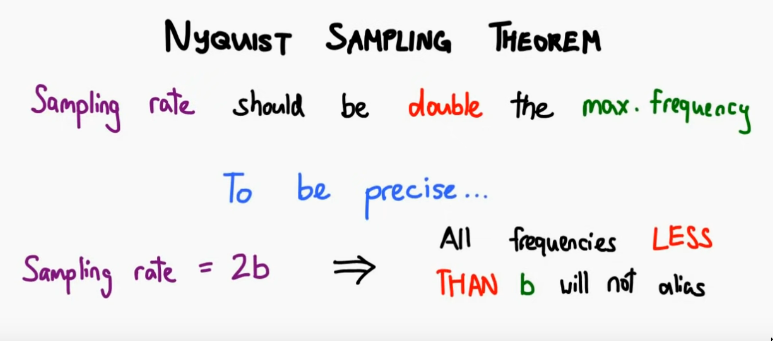 NYQUIST SAMPLING THEOREM
Sampling rate should be double the max. frequency
To be precise...
Sampling rate = 2b ⇒ All frequencies LESS
THAN b will not alias